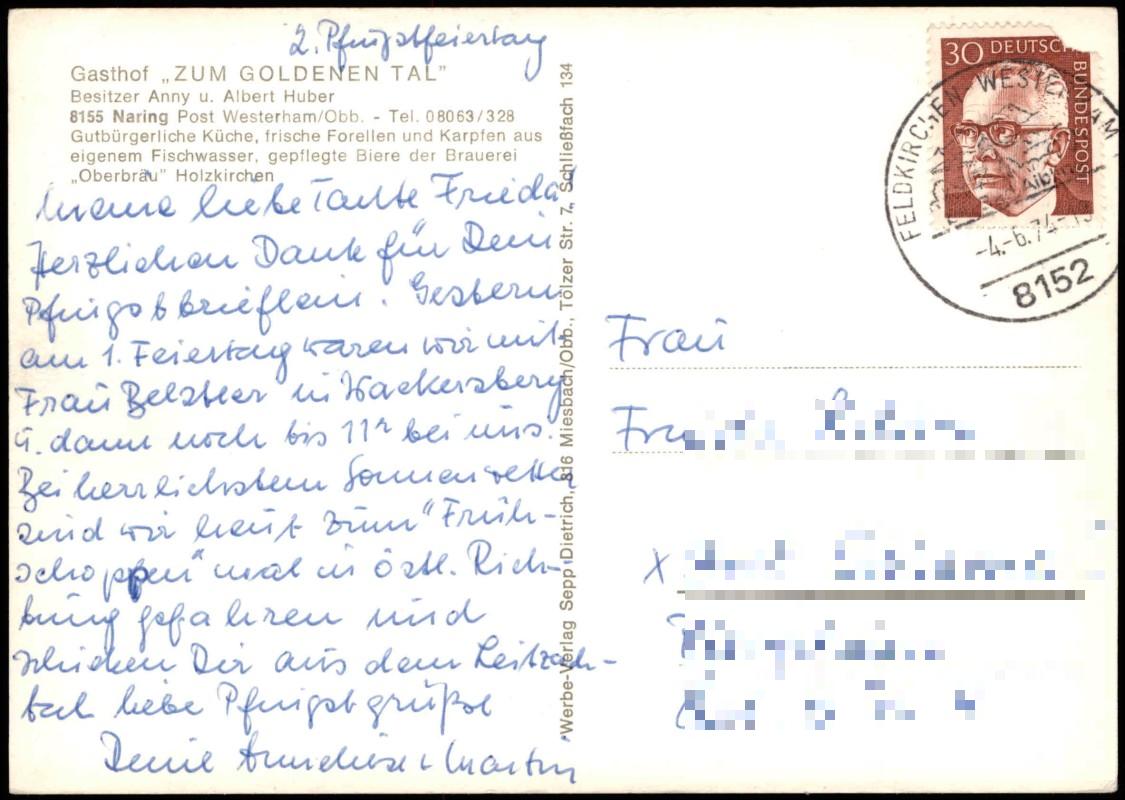 2. Pfingstfeiertag
Gasthof „ZUM GOLDENEN TAL”
Besitzer Anny u. Albert Huber
8155 Naring Post Westerham/Obb. - Tel. 08063/328
Gutbürgerliche Küche, frische Forellen und Karpfen aus
eigenem Fischwasser, gepflegte Biere der Brauerei
„Oberbräu” Holzkirchen
Meine liebe Tante Frieda!
Herzlichen Dank für Dein
Pfingstbrieflein. Gestern
am 1. Feiertag waren wir mit
Frau Belstler in Wackersberg
u. dann noch bis 11h bei uns.
Bei herrlichstem Sonnenwetter
sind wir heut zum "Früh-
schoppen" mal in östl. Rich-
tung gefahren und
schicken Dir aus dem Leitzach-
tal liebe Pfingstgrüße
Deine Anneliese + Martin
Werbe-Verlag Sepp Dietrich, 816 Miesbach/Obb., Tölzer Str. 7, Schließfach 134
30 DEUTSCHE BUNDESPOST
FELDKIRCHEN WESTERHAM
-4.-6.74-
8152
Frau
x